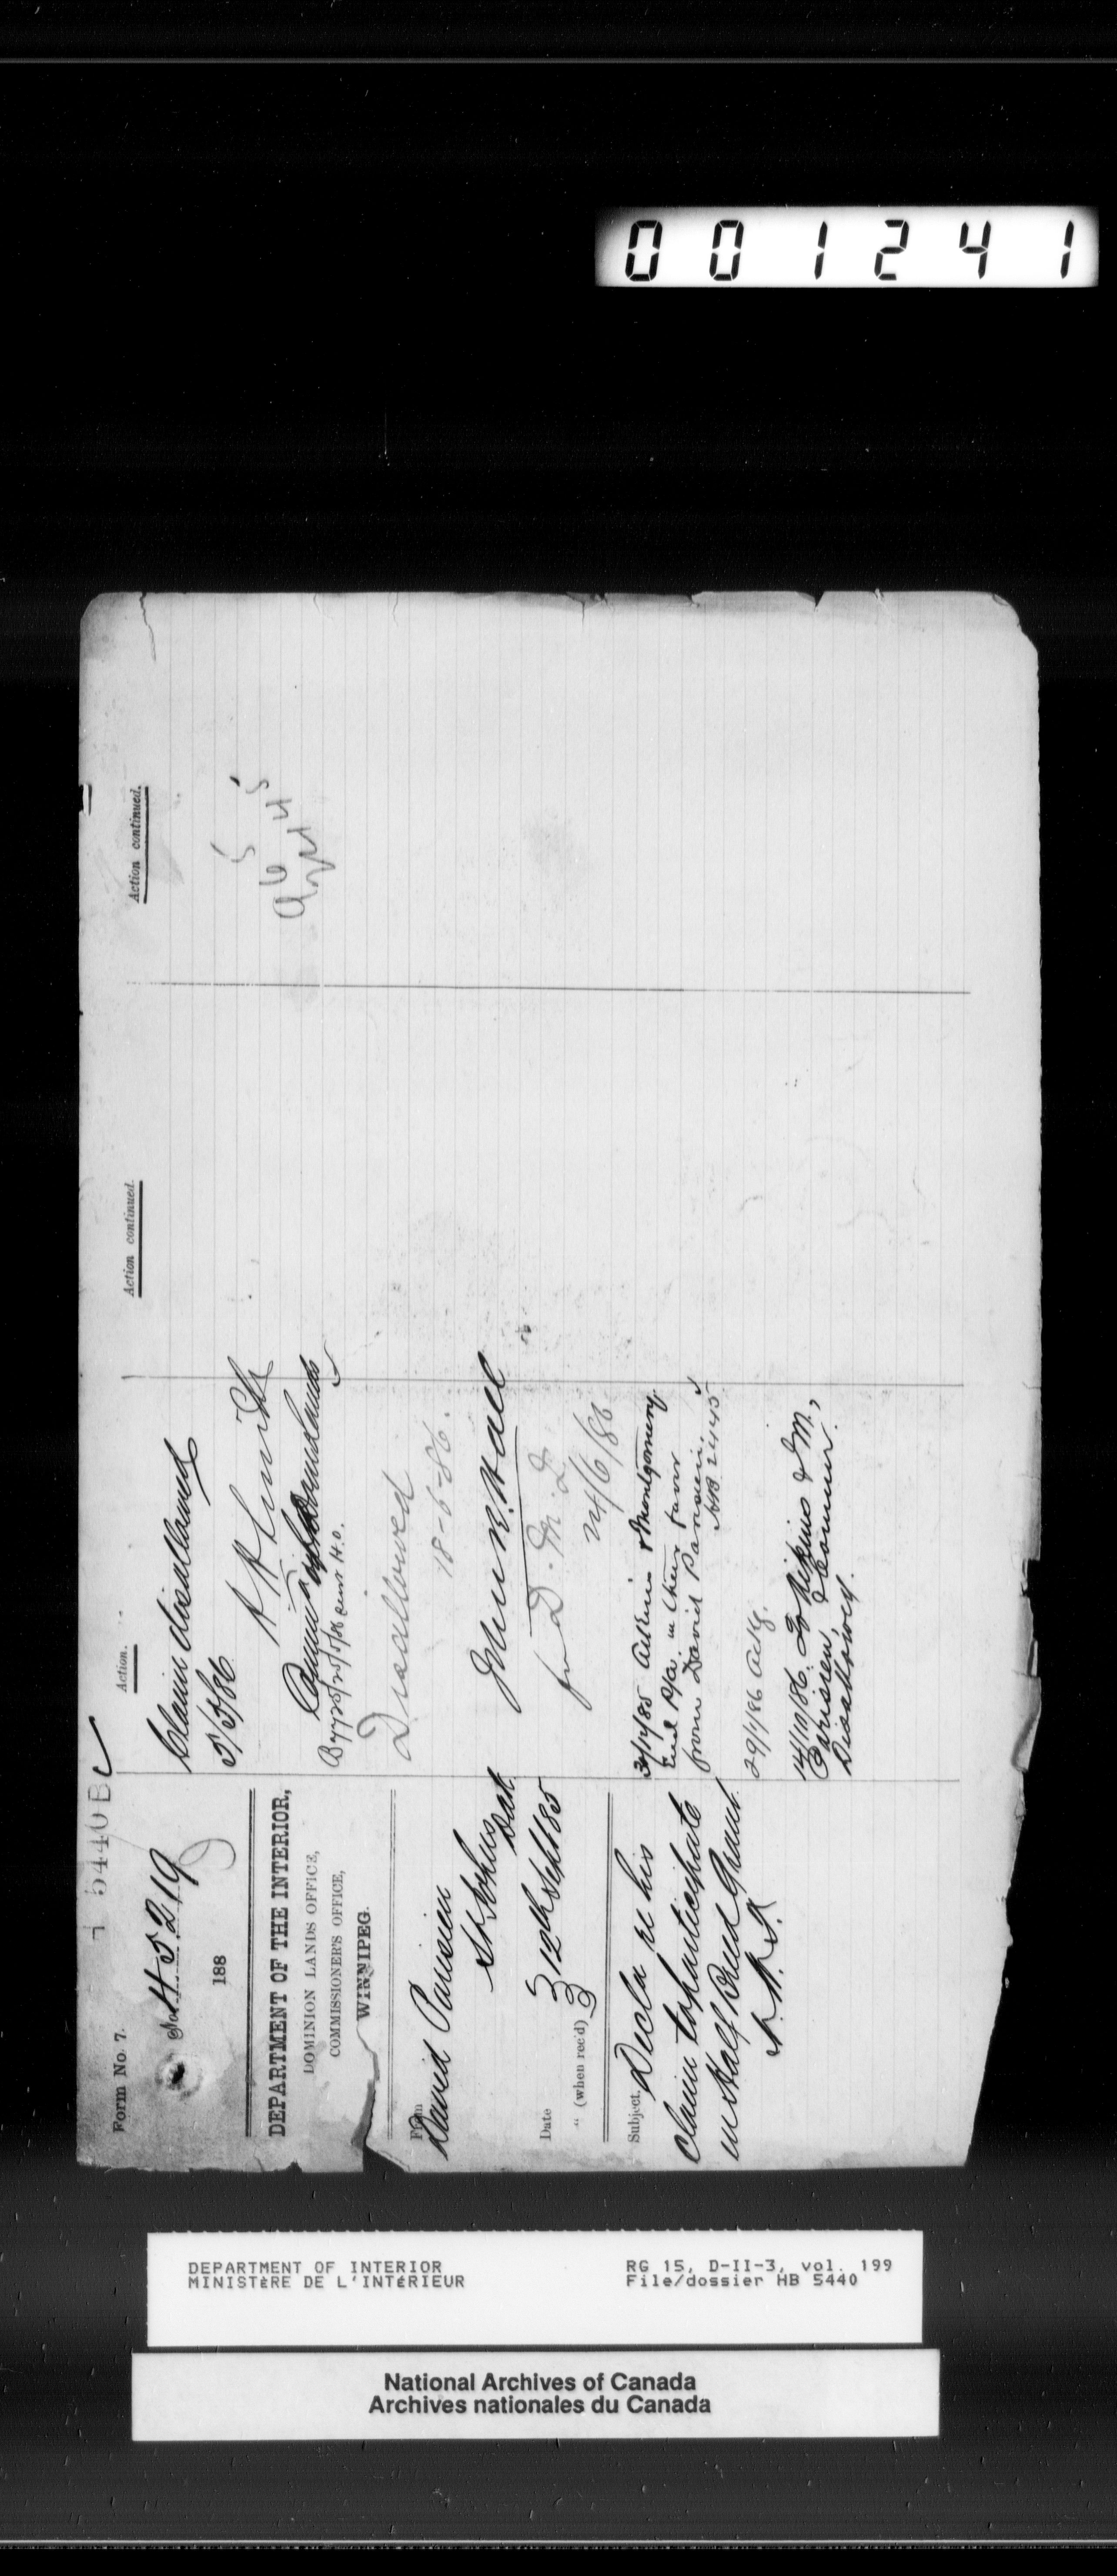 001241
5440 B
Form No. 7.
No. H 5219
188
DEPARTMENT OF THE INTERIOR,
DOMINION LANDS OFFICE,
COMMISSIONER'S OFFICE,
WINNIPEG.
From
David Parisien
St Johns
Dak
Date
12th Sept 85
" (when rec'd)
Subject.
Decla re his
claim to participate
in Half Breed Grant
N.W.T.
Action.
Claim disallowed
5/5/86
Disallowed
18-6-86.
Jno R. Hall
for D. M. I.
24/6/86
31/12/85 Aikins & Montgomery
Encl P/a. in their favor
from David Parisien.
HB 2445
29/1/86 ackg.
14/10/86. To Aikins & M.,
Parisien, & Commr.
Disallowed.
Action continued.
Action continued.
DEPARTMENT OF INTERIOR
MINISTÈRE DE L'INTÉRIEUR
RG 15, D-II-3, vol. 199
File/dossier HB 5440
National Archives of Canada
Archives nationales du Canada